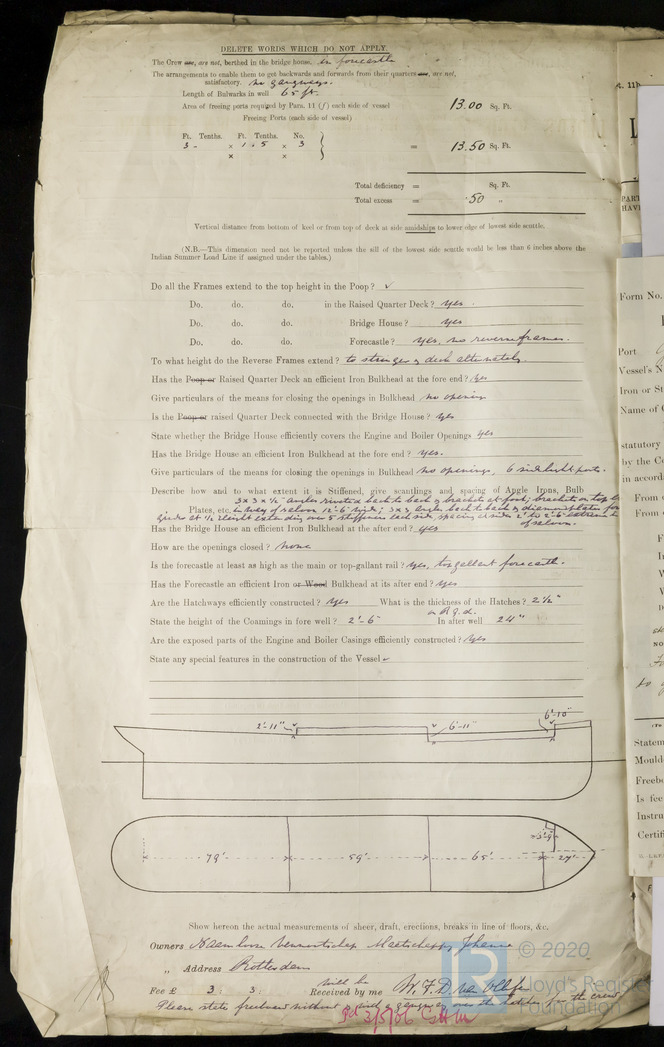 DELETE WORDS WHICH DO NOT APPLY.
The Crew are, are not, berthed in the bridge house, in forecastle
The arrangements to enable them to get backwards and forwards from their quarters are, are not,
satisfactory. no gangways.
Length of Bulwarks in well 65 ft.
Area of freeing ports required by Para. 11 (f) each side of vessel 13.00 Sq. Ft.
Freeing Ports (each side of vessel)
Ft. Tenths. Ft. Tenths. No.
3 - × 1.5 × 3 = 13.50 Sq. Ft.
× ×
Total deficiency = Sq. Ft.
Total excess = .50 "
Vertical distance from bottom of keel or from top of deck at side amidships to lower edge of lowest side scuttle.
(N.B.—This dimension need not be reported unless the sill of the lowest side scuttle would be less than 6 inches above the
Indian Summer Load Line if assigned under the tables.)
Do all the Frames extend to the top height in the Poop? ✓
Do. do. do. in the Raised Quarter Deck? yes
Do. do. do. Bridge House? yes
Do. do. do. Forecastle? yes, no reverse frames.
To what height do the Reverse Frames extend? to stringer & deck alternately.
Has the Poop or Raised Quarter Deck an efficient Iron Bulkhead at the fore end? yes
Give particulars of the means for closing the openings in Bulkhead no opening
Is the Poop or raised Quarter Deck connected with the Bridge House? yes
State whether the Bridge House efficiently covers the Engine and Boiler Openings yes
Has the Bridge House an efficient Iron Bulkhead at the fore end? yes.
Give particulars of the means for closing the openings in Bulkhead no openings, 6 sidelight ports.
Describe how and to what extent it is Stiffened, give scantlings and spacing of Angle Irons, Bulb
3 x 3 x ½" angles riveted back to back & brackets at foot; brackets on top
Plates, etc. in way of saloon 12'-6" wide; 3 x 3 angles back to back & diamond plates
at ½ height extending over 5 stiffeners each side, spacing at sides 2' to 2'-6"
of saloon.
Has the Bridge House an efficient Iron Bulkhead at the after end? yes
How are the openings closed? none
Is the forecastle at least as high as the main or top-gallant rail? yes, topgallant forecastle.
Has the Forecastle an efficient Iron or Wood Bulkhead at its after end? yes
Are the Hatchways efficiently constructed? yes What is the thickness of the Hatches? 2½"
on R.q.d.
State the height of the Coamings in fore well? 2'-6" In after well 24"
Are the exposed parts of the Engine and Boiler Casings efficiently constructed? yes
State any special features in the construction of the Vessel
2'-11" 6'-11" 6'-10"
79' 59' 65' 27'
Show hereon the actual measurements of sheer, draft, erections, breaks in line of floors, &c.
Owners Naamlooze Vennootschap Maatschappy Johanna
" Address Rotterdam
will be
Fee £ 3 : 3 : Received by me
Please state freeboard without a gangway over the hatches for the crew
© 2020
Lloyd's Register
Foundation
PART
HAVI
Form No.
Port
Vessel's N
Iron or St
Name of
statutory
by the Co
in accord
From
From
Statem
Mould
Freeb
Is fee
Instru
Certif